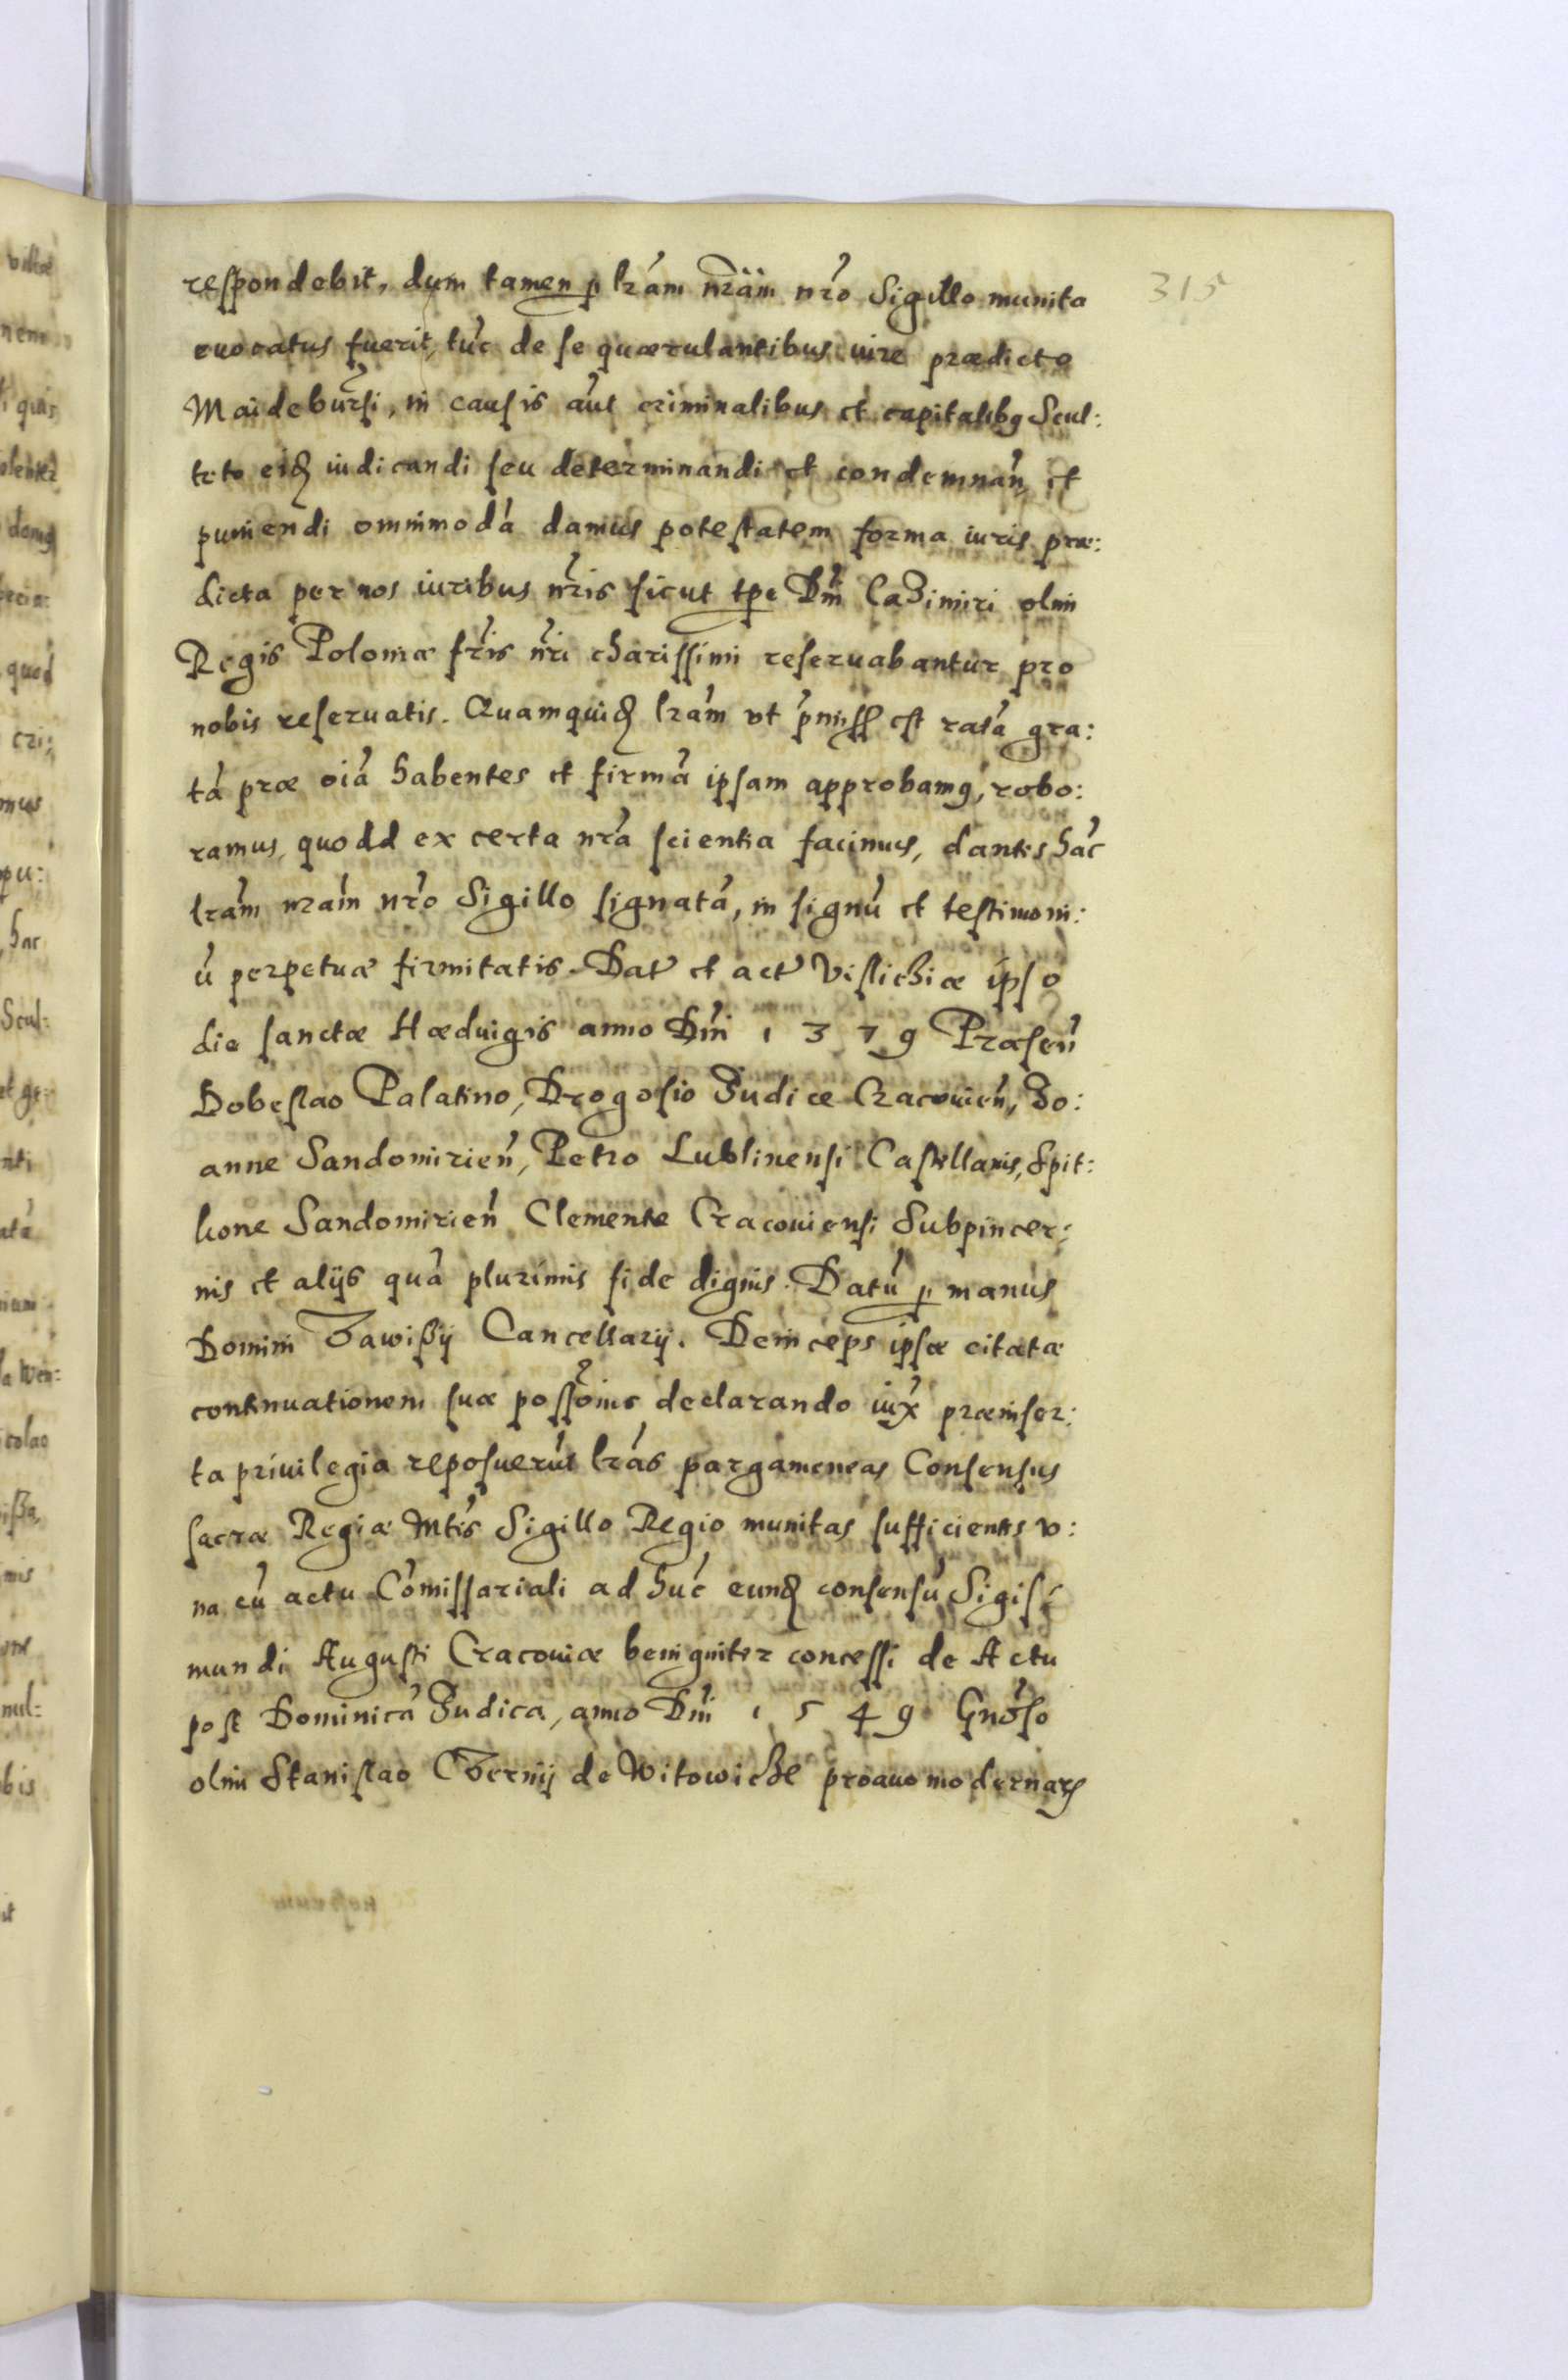 315
respondebit, dum tamen p lrám nrám nró Sigillo munita
euocatus fuerit, túc de se quærulantibus iure prædicto
Maidebursi, in causis aút criminalibus et capitalibg Scul:
teto eidꝫ iudicandi seu determinandi et condemnań, et
puniendi omnimodá damus potestatem forma iuris præ:
dicta per nos iuribus nris sicut tpe Dni Cazimiri olim
Regis Poloniæ fris nri charissimi reseruabantur pro
nobis reseruatis. Quamquidꝫ lrám vt pmiss est ratá gra:
tá præ oiá habentes et firmá ipsam approbamg, robo:
ramus, quodd ex certa nrá scientia facimus, dantes hác
lrám nrám nró Sigillo signatá, in signú et testimoni:
ú perpetuæ firmitatis. Dat et act Vislichiæ ipso
die sanctæ Hæduigis anno Dni 1379 Præseń
Dobeslao Palatino, Drogosio Judice Cracouień, Jo:
anne Sandomirień, Petro Lublinensi Castellanis, Spit:
kone Sandomirień Clemente Cracouiensi Subpincer:
nis et alijs quá plurimis fide dignis. Datú p manus
Domini Zawißij Cancellarij. Deinceps ipsæ citatæ
continuationem suæ possóinis declarando iux præinser:
ta priuilegia reposuerút lrás pargameneas Consensus
sacræ Regiæ Mtis Sigillo Regio munitas sufficientes v:
na cú actu Cómissariali ad húc eundꝫ consensú Sigis:
mundi Augusti Cracouiæ benigniter concessi de Actu
post Dominicá Judica, anno Dni 1549 Gnóso
olim Stanislao Czernij de Witowicze proauo modernarꝫ